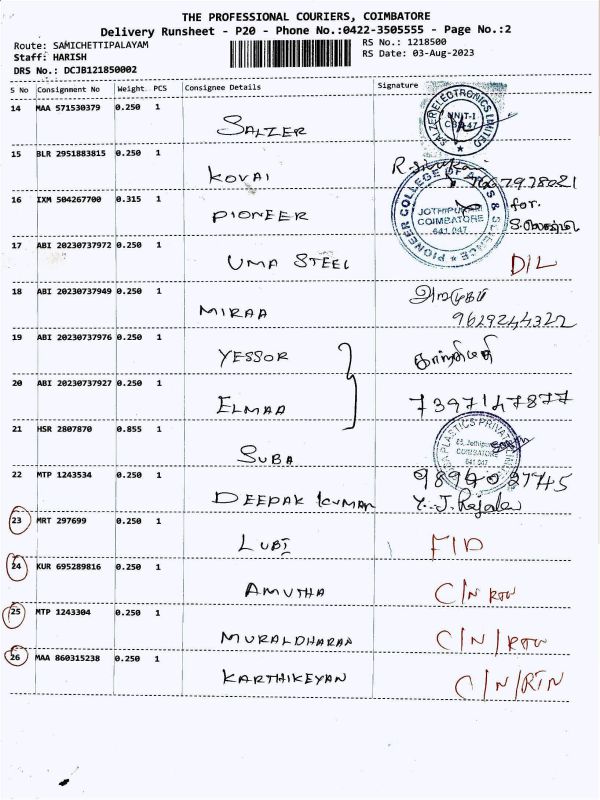 THE PROFESSIONAL COURIERS, COIMBATORE
Delivery Runsheet - P20 - Phone No.:0422-3505555 - Page No.:2
Route: SAMICHETTIPALAYAM
Staff: HARISH
DRS No.: DCJB121850002
RS No.: 1218500
RS Date: 03-Aug-2023
S No Consignment No Weight PCS Consignee Details Signature
14 MAA 571530379 0.250 1 SALZER
SALZER ELECTRONICS LIMITED
UNIT-I
15 BLR 2951883815 0.250 1 KOVAI
16 IXM 504267700 0.315 1 PIONEER
PIONEER COLLEGE OF ARTS & SCIENCE
JOTHIPURAM
COIMBATORE
641 047
for.
17 ABI 20230737972 0.250 1 UMA STEEL D/L
18 ABI 20230737949 0.250 1 MIRAA
9629244322
19 ABI 20230737976 0.250 1 YESSOR
20 ABI 20230737927 0.250 1 ELMAA 7397147877
21 HSR 2807870 0.855 1 SUBA
PLASTICS PRIVATE
COIMBATORE
641 047
22 MTP 1243534 0.250 1 DEEPAK KUMAR
23 MRT 297699 0.250 1 LUBI F/D
24 KUR 695289816 0.250 1 AMUTHA C/N RTN
25 MTP 1243304 0.250 1 MURALDHARAA C/N/RTN
26 MAA 860315238 0.250 1 KARTHIKEYAN C/N/RTN